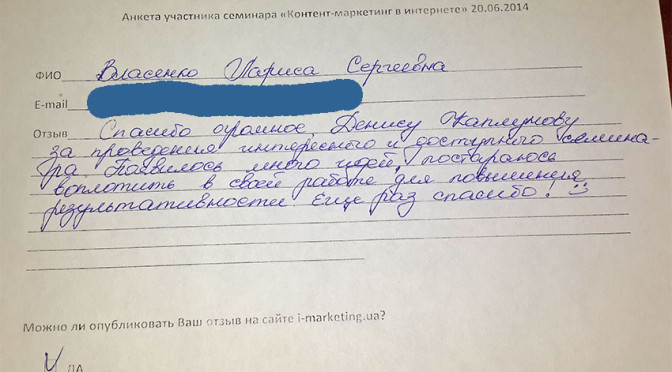 Анкета участника семинара «Контент-маркетинг в интернете» 20.06.2014
ФИО Власенко Лариса Сергеевна
E-mail
Отзыв Спасибо огромное Денису Каплунову
за проведения интересного и доступного семина-
ра. Появилось много идей, постараюсь
воплотить в своей работе для повышения
результативности. Еще раз спасибо!
Можно ли опубликовать Ваш отзыв на сайте i-marketing.ua?
ДА